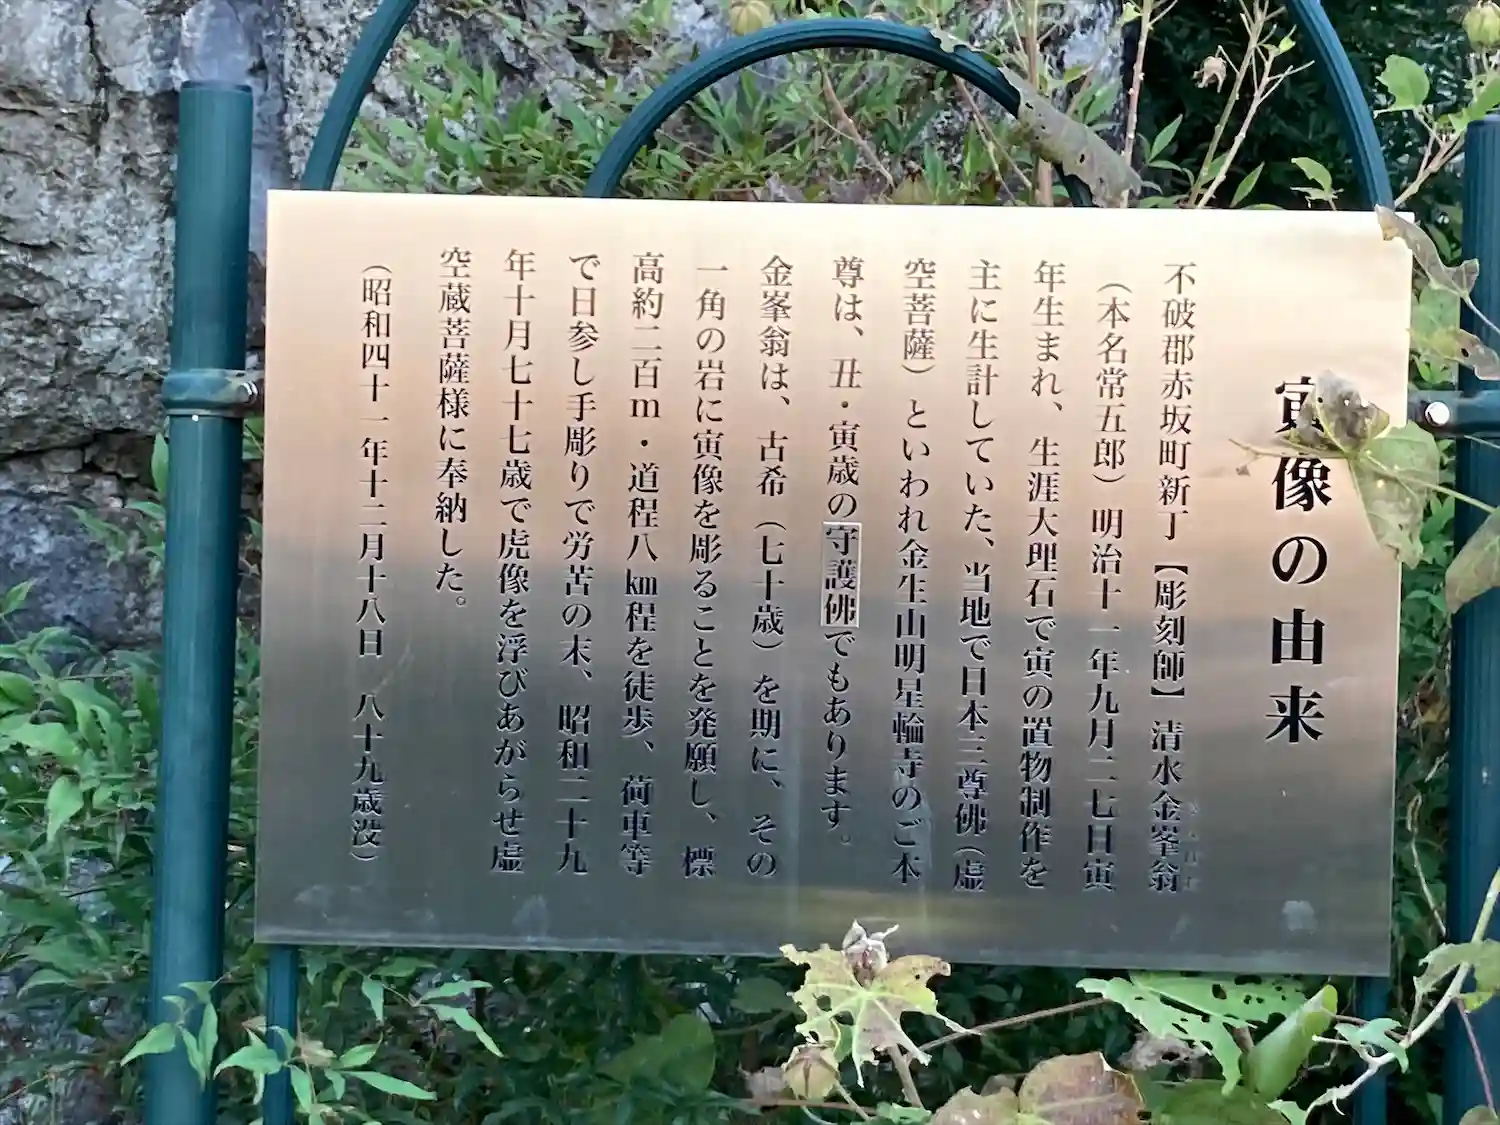 寅像の由来
不破郡赤坂町新丁【彫刻師】清水金峯翁
（本名常五郎）明治十一年九月二七日寅
年生まれ、生涯大理石で寅の置物制作を
主に生計していた、当地で日本三尊佛（虚
空菩薩）といわれ金生山明星輪寺のご本
尊は、丑・寅歳の守護佛でもあります。
金峯翁は、古希（七十歳）を期に、その
一角の岩に寅像を彫ることを発願し、標
高約二百ｍ・道程八㎞程を徒歩、荷車等
で日参し手彫りで労苦の末、昭和二十九
年十月七十七歳で虎像を浮びあがらせ虚
空蔵菩薩様に奉納した。
（昭和四十一年十二月十八日　八十九歳没）